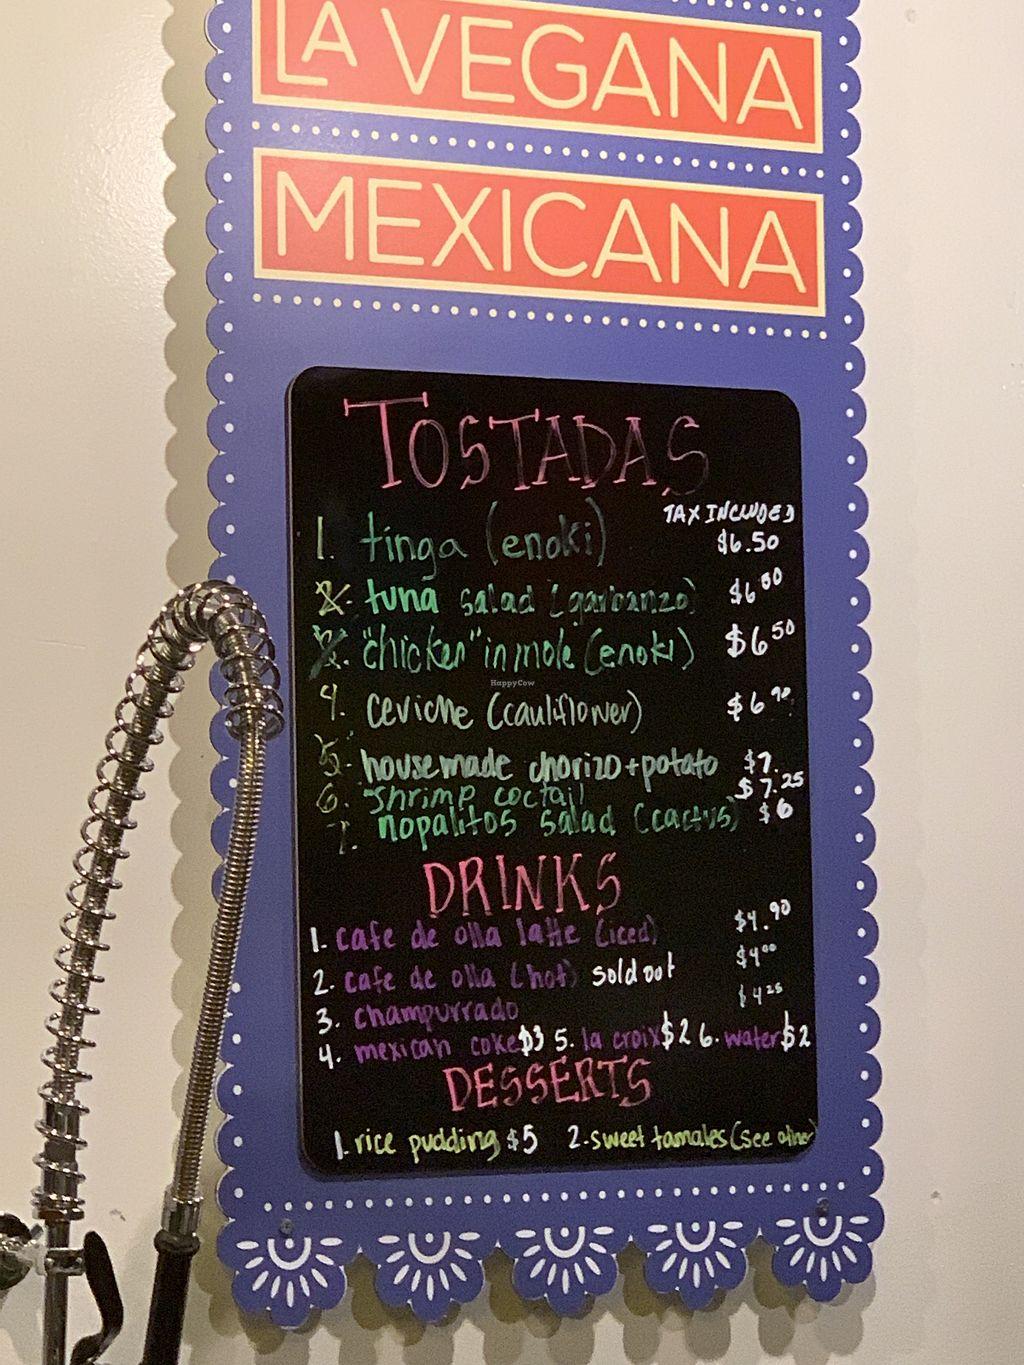 LA VEGANA
MEXICANA
TOSTADAS
TAX INCLUDED
1. tinga (enoki) $6.50
2. tuna salad (garbanzo) $6.00
3. "chicken" in mole (enoki) $6.50
HappyCow
4. ceviche (cauliflower) $6.90
5. housemade chorizo + potato $7.
6. "shrimp coctail $7.25
7. nopalitos salad (cactus) $6
DRINKS
1. cafe de olla latte (iced) $4.90
2. cafe de olla (hot) sold out $4.00
3. champurrado $4.25
4. mexican coke $3 5. la croix $2 6. water $2
DESSERTS
1. rice pudding $5 2. sweet tamales (see